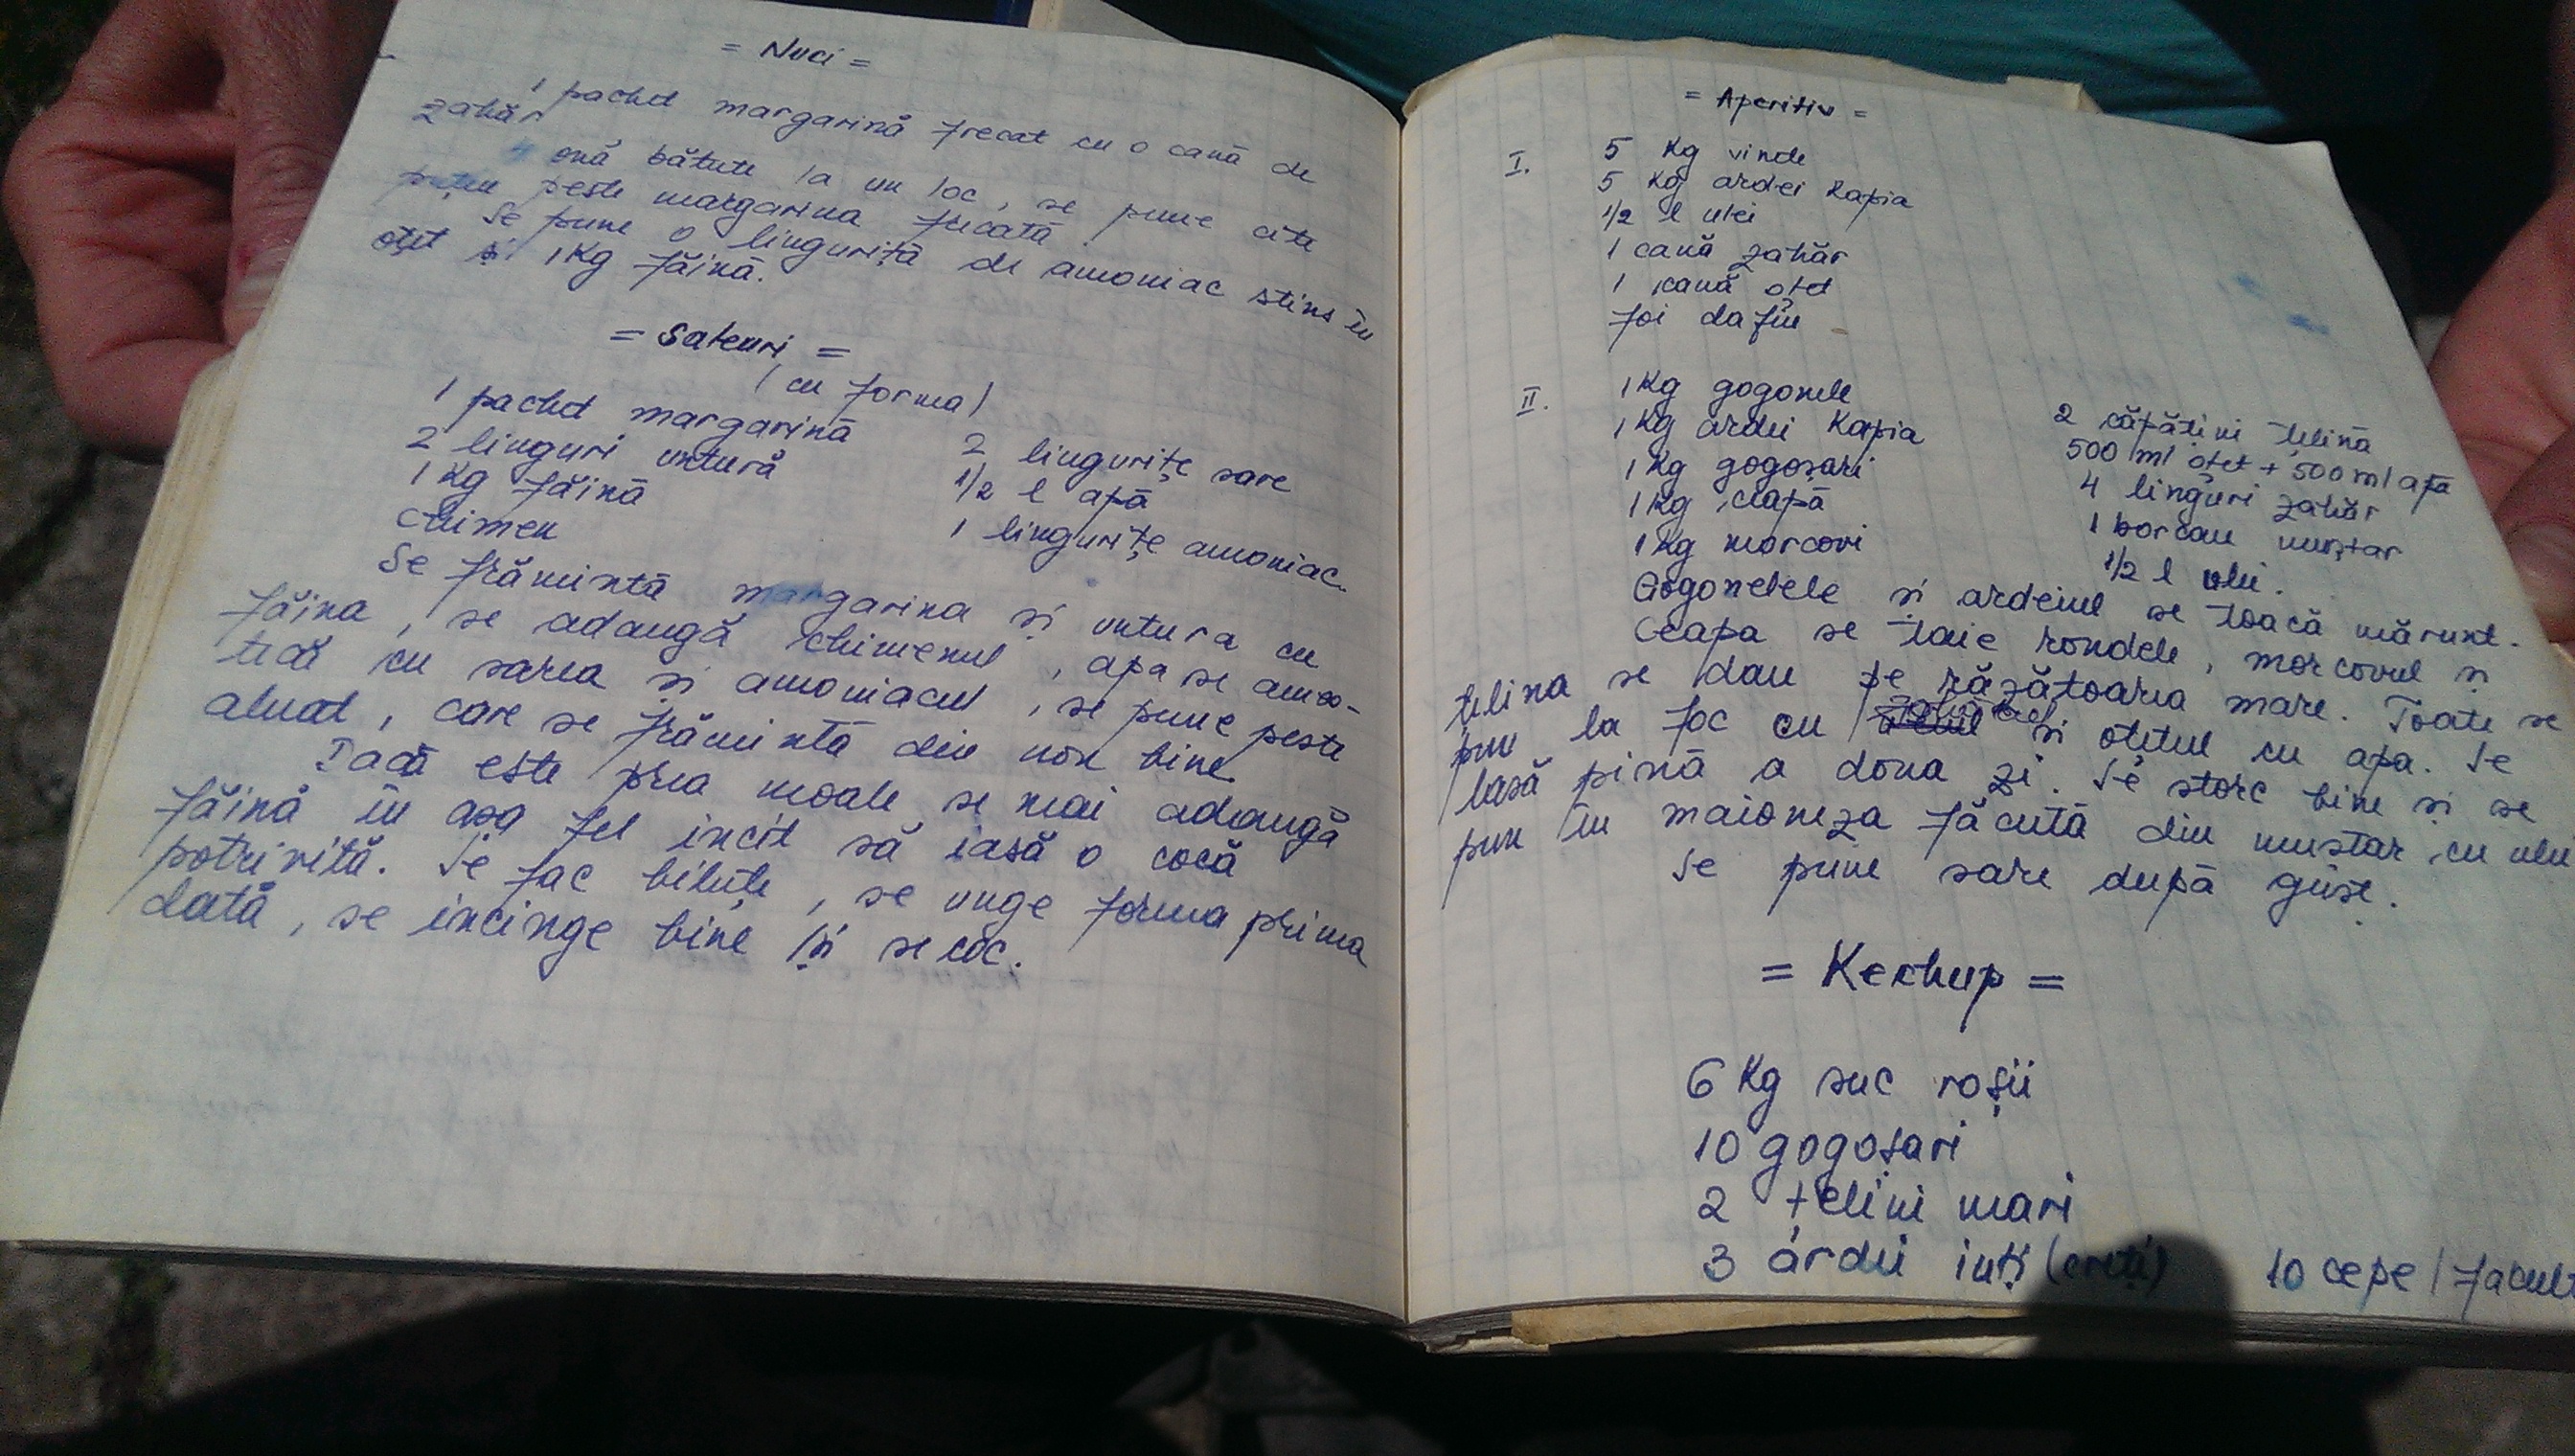 = Nuci =
1 pachet margarină frecat cu o cană de
zahăr
4 ouă bătute la un loc, se pune cîte
puțin peste margarina frecată.
Se pune o linguriță de amoniac stins în
oțet și 1 Kg făină.
= Sateuri =
(cu forma)
1 pachet margarină
2 linguri untură
1 Kg făină
chimen
2 lingurițe sare
1/2 l apă
1 lingurițe amoniac
Se frămîntă margarina și untura cu
făina, se adaugă chimenul, apa se ames-
tecă cu sarea și amoniacul, se pune peste
aluat, care se frămîntă din nou bine.
Dacă este prea moale se mai adaugă
făină în așa fel incît să iasă o cocă
potrivită. Se fac biluțe, se unge forma prima
dată, se incinge bine și se coc.
= Aperitiv =
I. 5 Kg vinete
5 Kg ardei Kapia
1/2 l ulei
1 cană zahăr
1 cană oțet
foi dafin
II. 1 Kg gogonele
1 Kg ardei Kapia
1 Kg gogoșari
1 Kg ceapă
1 Kg morcovi
2 căpățini țelină
500 ml oțet + 500 ml apă
4 linguri zahăr
1 borcan muștar
1/2 l ulei.
Gogonelele și ardeiul se toacă mărunt.
Ceapa se taie rondele, morcovul și
țelina se dau pe răzătoarea mare. Toate se
pun la foc cu zahărul și oțetul cu apa. Se
lasă pînă a doua zi. Se storc bine și se
pun în maioneza făcută din mustar cu ulei
Se pune sare după gust.
= Kechup =
6 Kg suc roșii
10 gogoșari
2 țelini mari
3 ardei iuți
10 cepe / facult